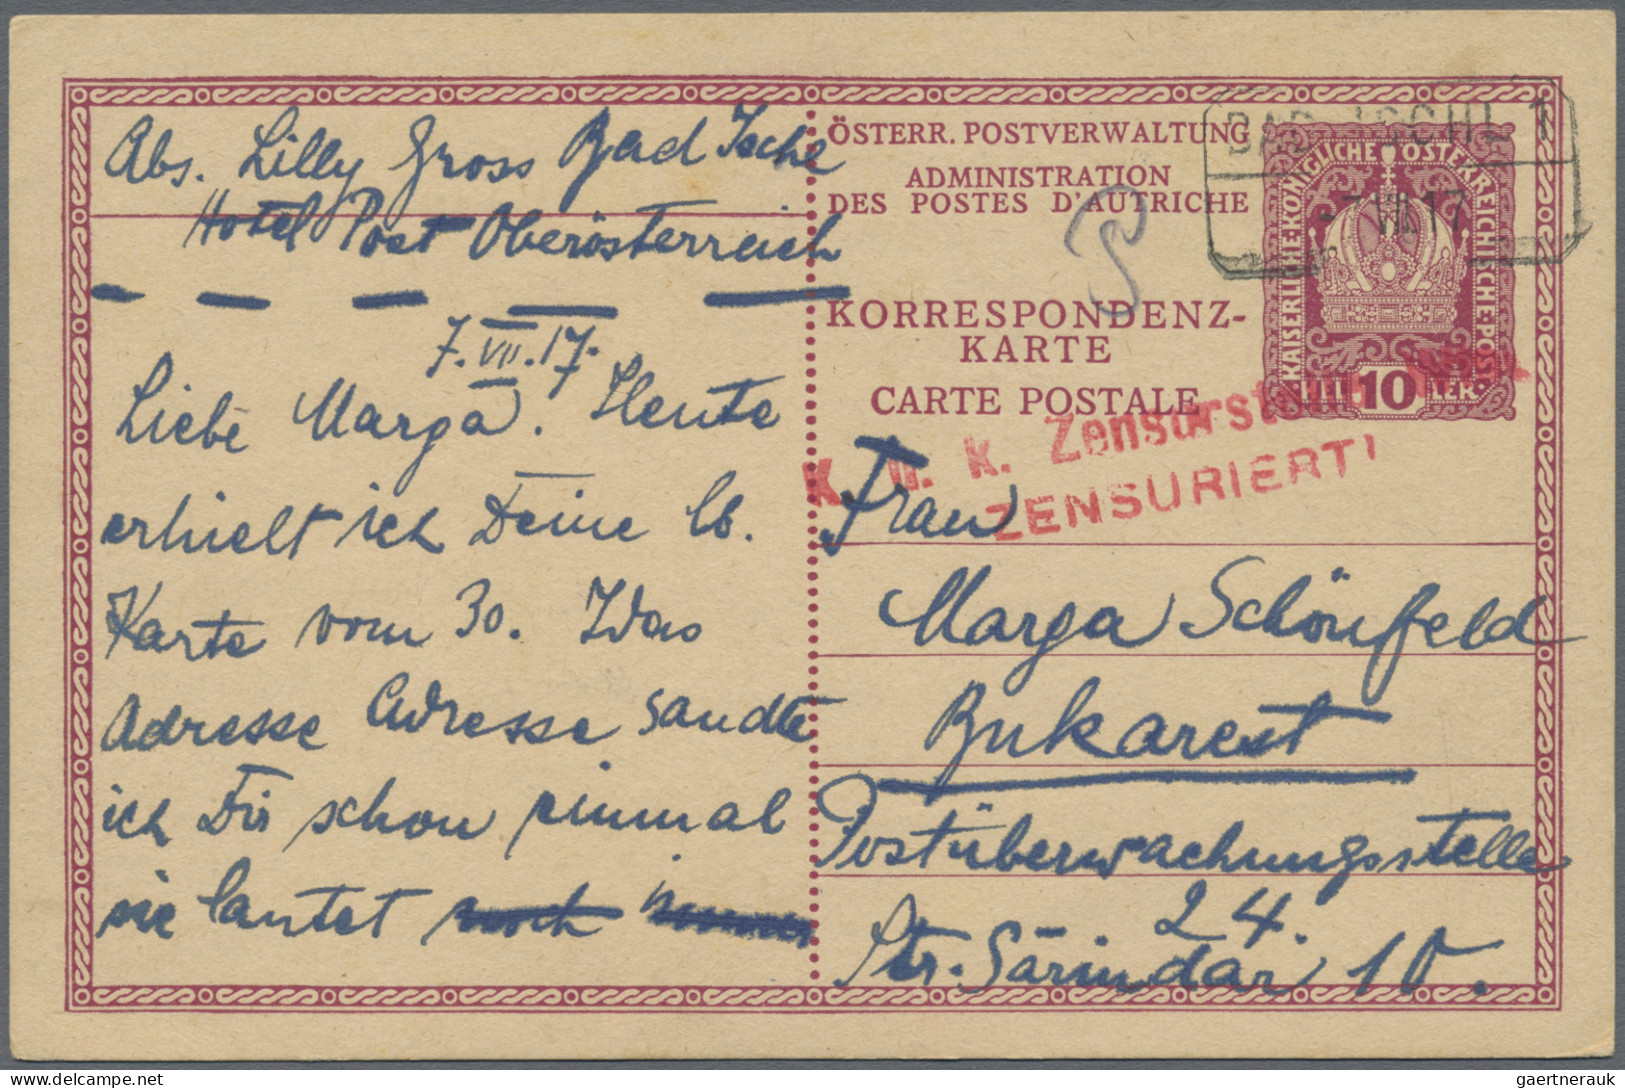 Abs. Lilly Gross Bad Ischl
Hotel Post Oberösterreich
7.VII.17.
Liebe Marga. Heute
erhielt ich Deine lb.
Karte vom 30. Idas
Adresse Adresse sandte
ich Dir schon einmal
sie lautet noch immer
ÖSTERR. POSTVERWALTUNG
ADMINISTRATION
DES POSTES D'AUTRICHE
KORRESPONDENZ-
KARTE
CARTE POSTALE
BAD ISCHL 1
-7.VII.17
KAISERLICHE·KÖNIGLICHE·ÖSTERREICHISCHE·POST
10
K. u. k. Zensurstelle
ZENSURIERT!
Frau
Marga Schönfeld
Bukarest
Postüberwachungsstelle
24.
Str. Sărindar 10.
delcampe.net
gaertnerauk